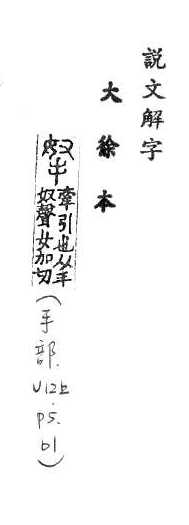 說文解字
大徐本
拏 牽引也从手
奴聲女加切
(手部.V12上.P5.b1)